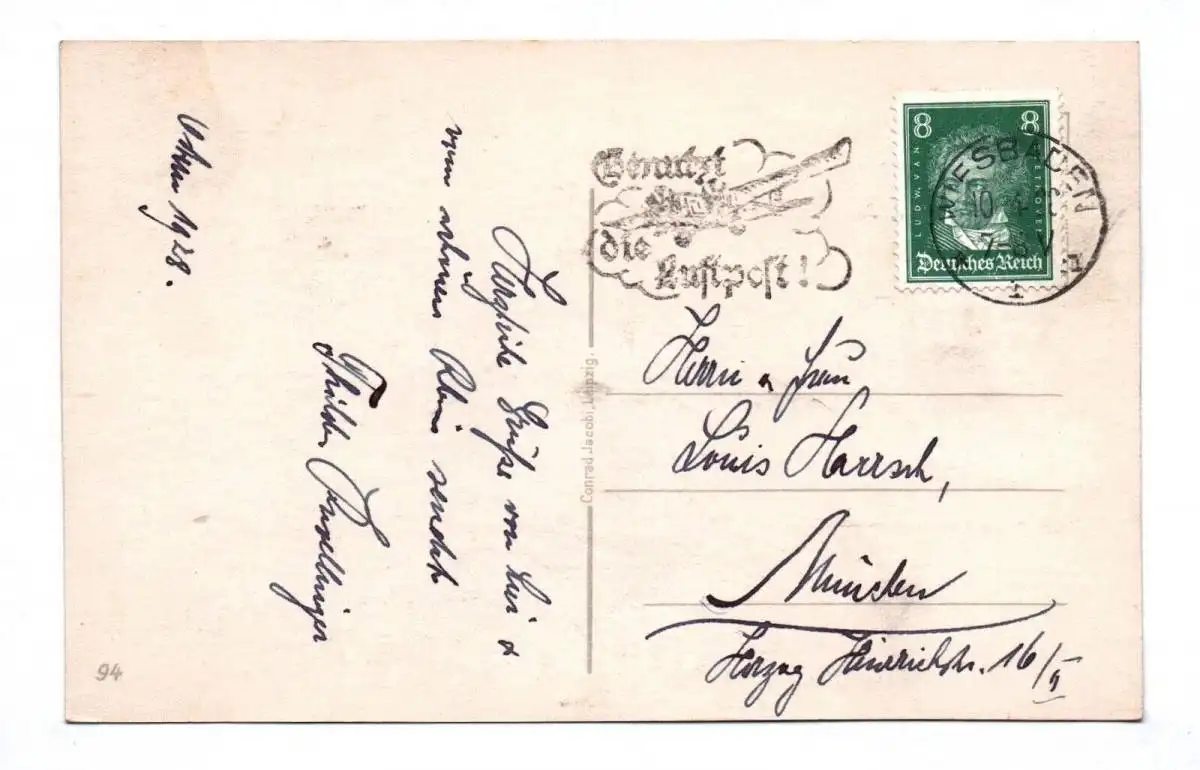 Ostern 1928.
Herzliche Grüße von hier &
vom schönen Rhein sendet
Thilde
Benutzt
die
Luftpost!
8 8
LUDW. VAN BEETHOVEN
Deutsches Reich
WIESBADEN
10. 4. 28
7-8 V
* 1 1
Conrad Jacobi, Leipzig.
Herrn u Frau
Louis Harrsch,
München
Herzog Heinrichstr. 16/I
94